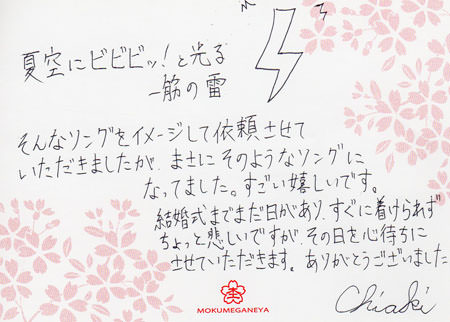 夏空にビビビッ!と光る
一筋の雷
そんなリングをイメージして依頼させて
いただきましたが、まさにそのようなリングに
なってました。すごい嬉しいです。
結婚式までまだ日があり、すぐに着けられず
ちょっと悲しいですが、その日を心待ちに
させていただきます。ありがとうございました
Chiaki
MOKUMEGANEYA